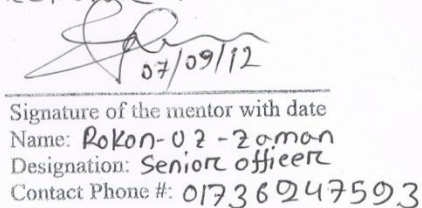 07/09/12
Signature of the mentor with date
Name: Rokon-Uz-Zaman
Designation: Senior officer
Contact Phone #: 01736247593